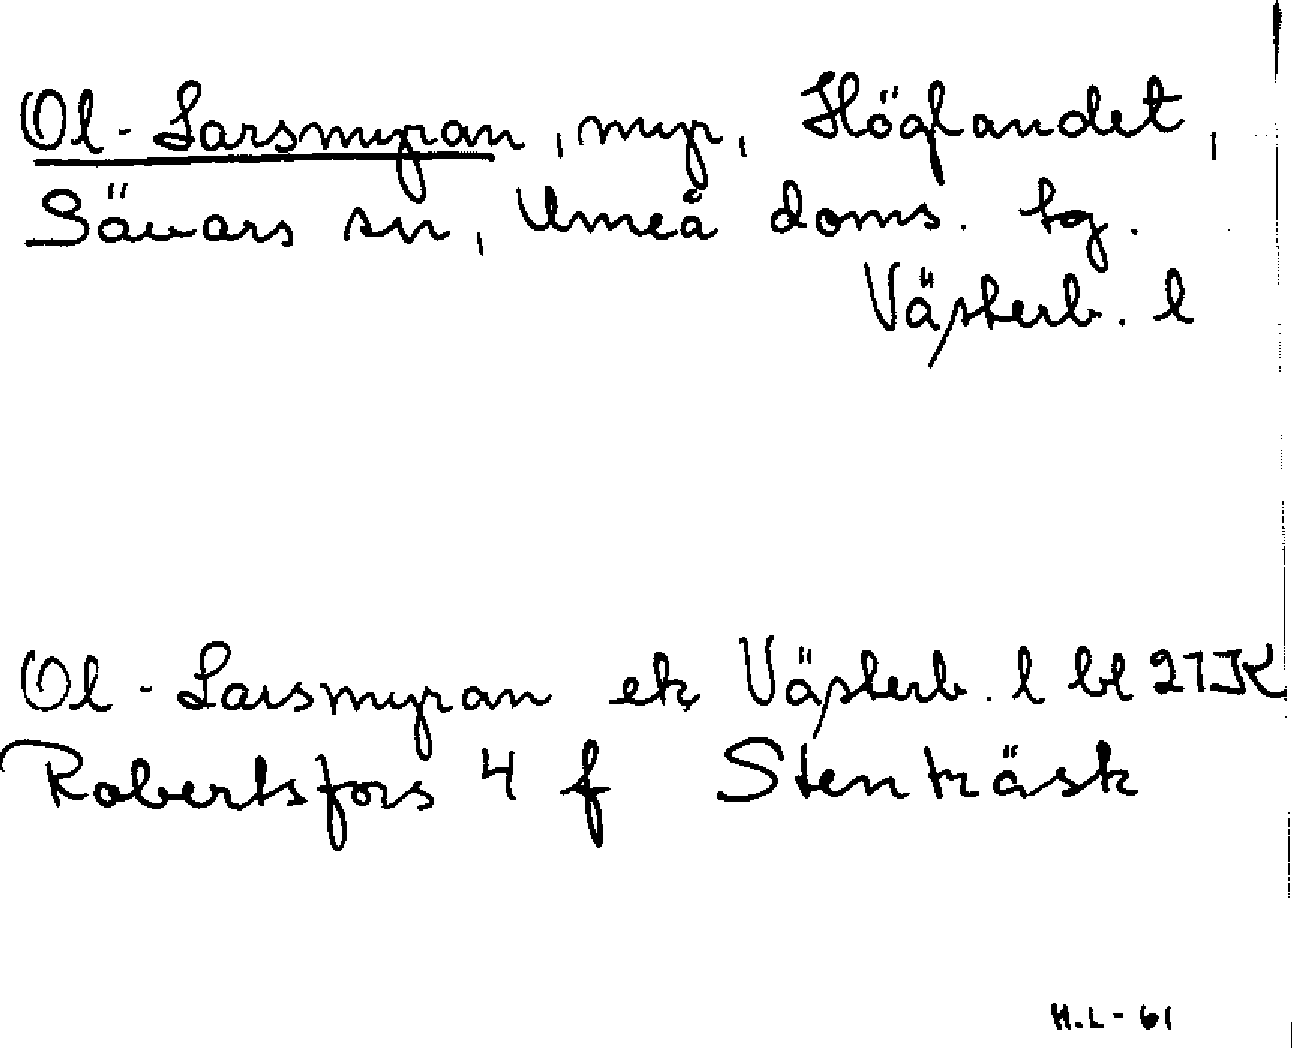 Ol-Larsmyran, myr, Höglandet,
Sävars sn, Umeå doms. tg.
Västerb. l
Ol-Larsmyran ek Västerb. l bl 21JK
Robertsfors 4 f Stenträsk
H.L-61